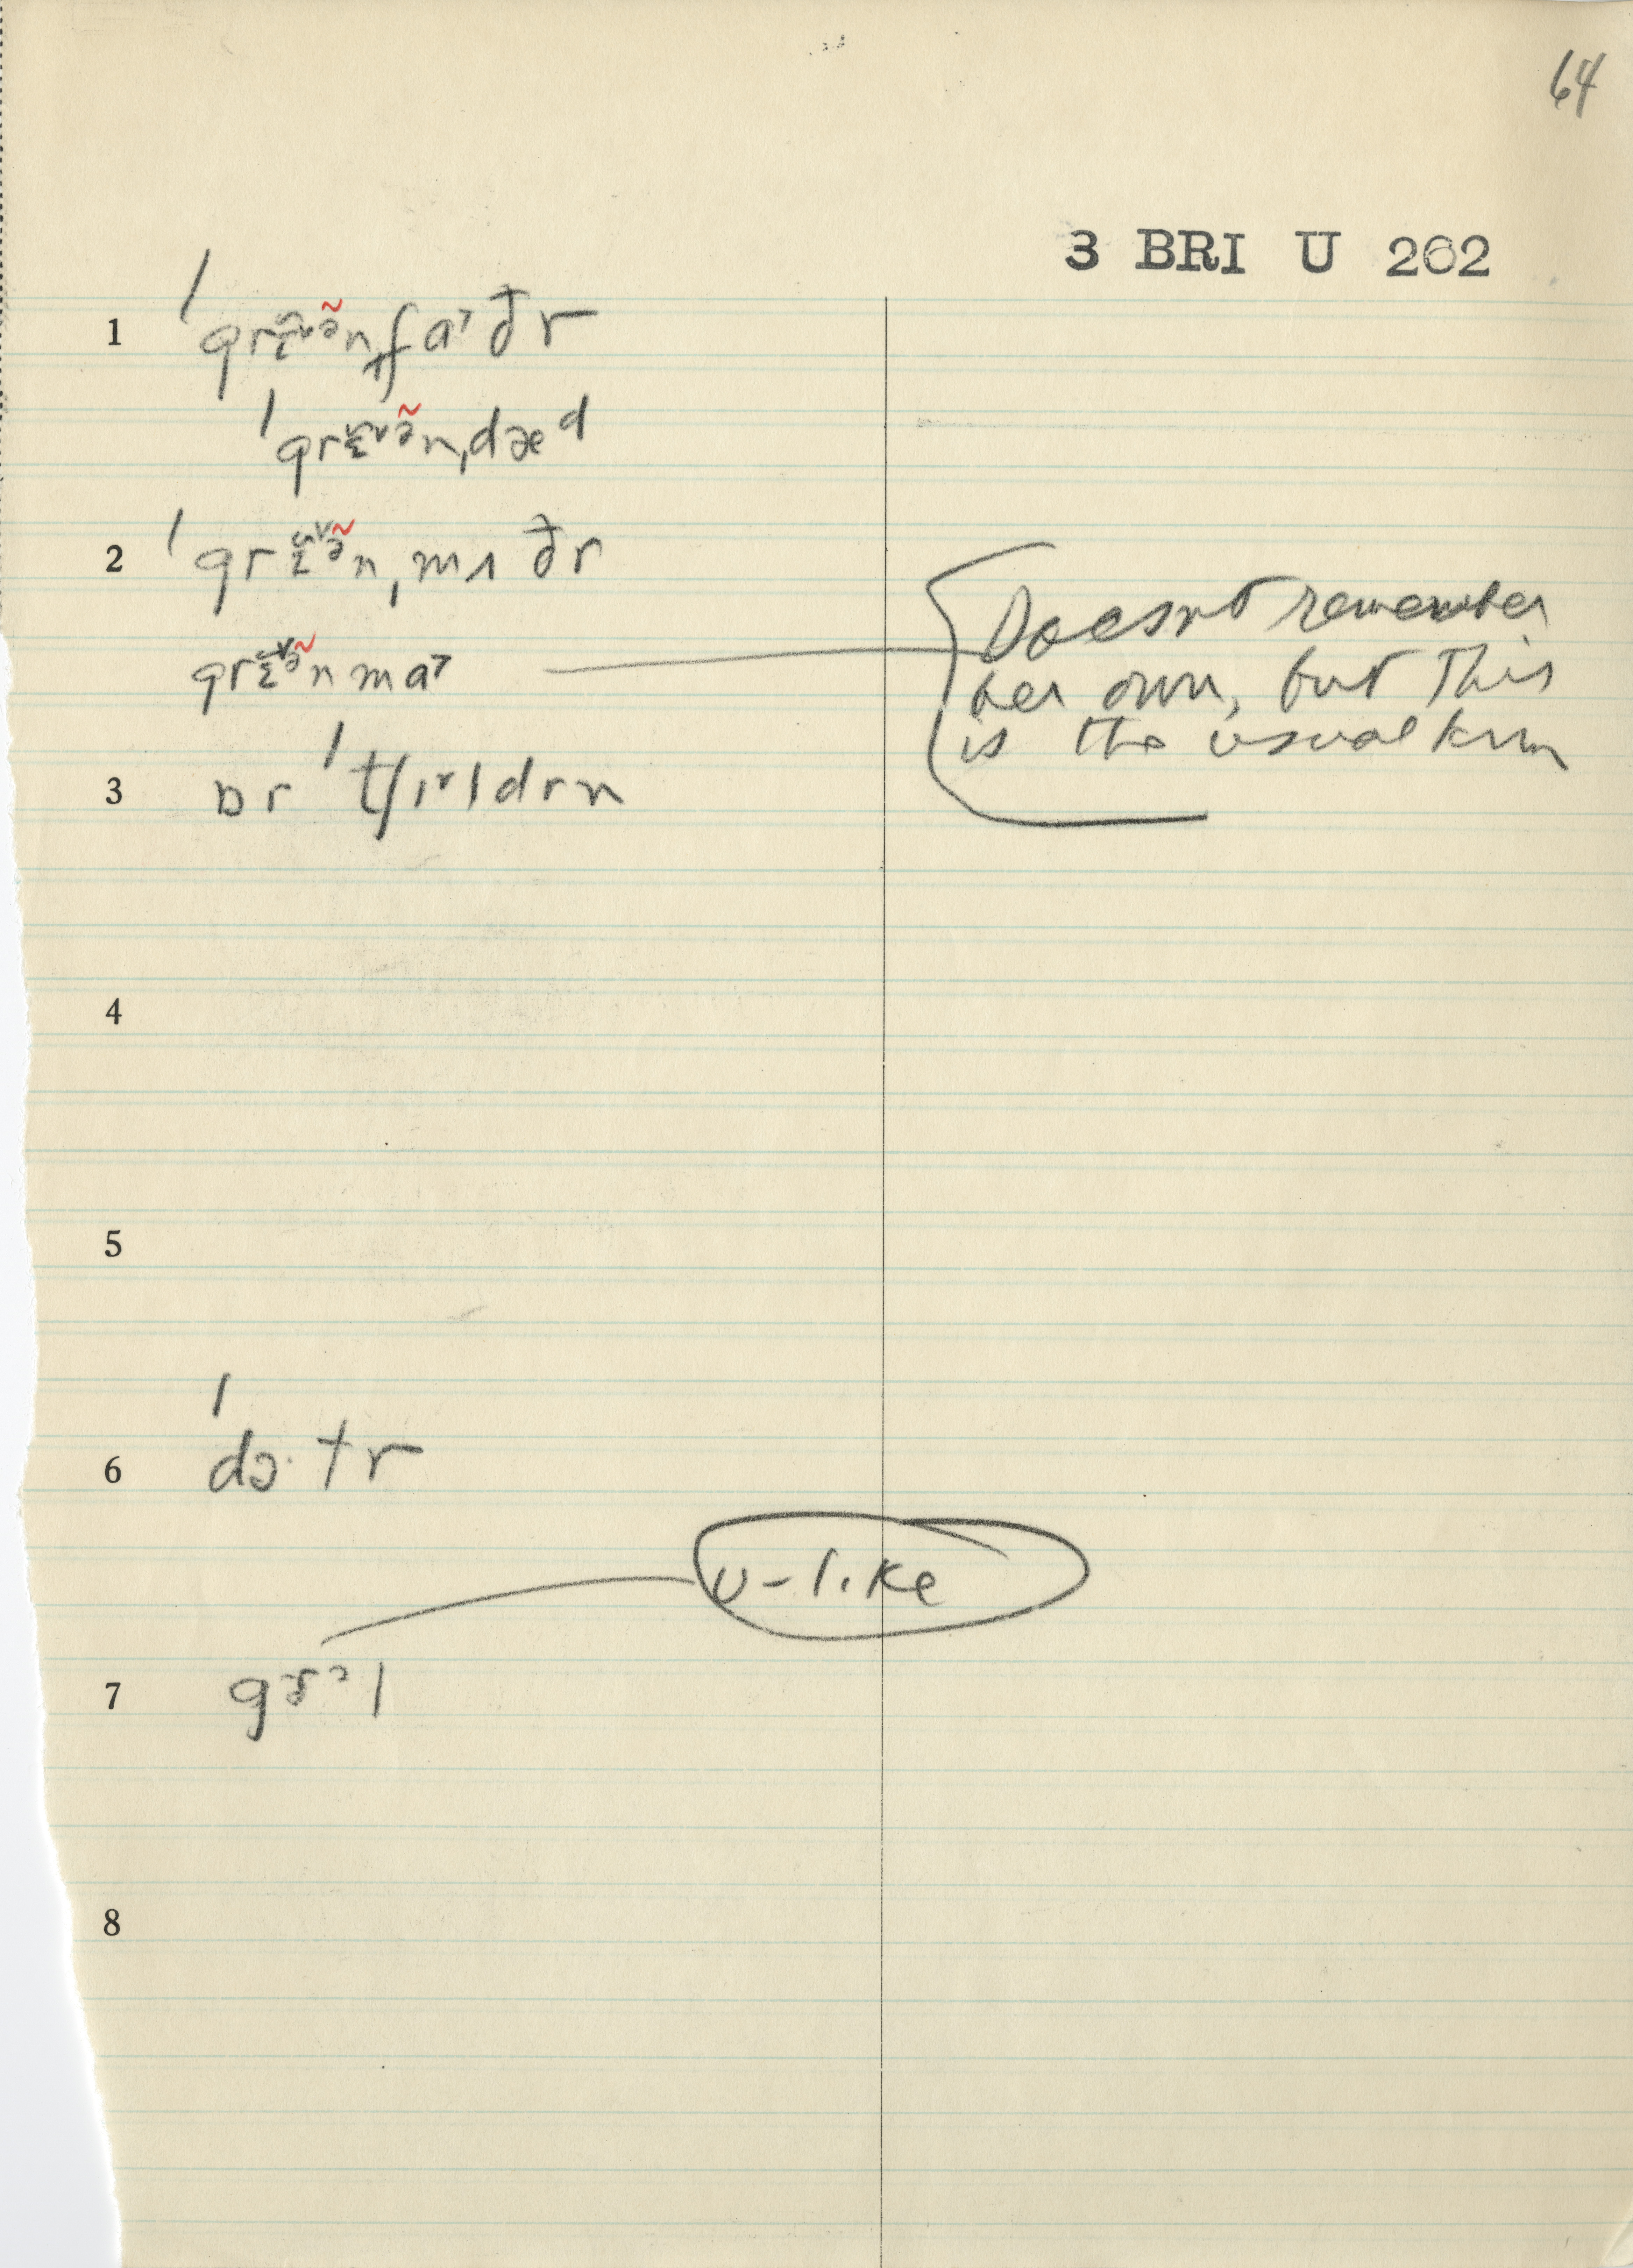 64
3 BRI U 202
1 ˈgrɛ̃ənˌfaðr
ˈgrɛ̃ənˌdæd
2 ˈgrɛ̃ənˌmʌðr
grɛ̃ənma
Doesnt remember
her own, but this
is the usual
3 ɒr ˈtʃɪldrn
4
5
6 ˈdɔ·tr
u-like
7
8